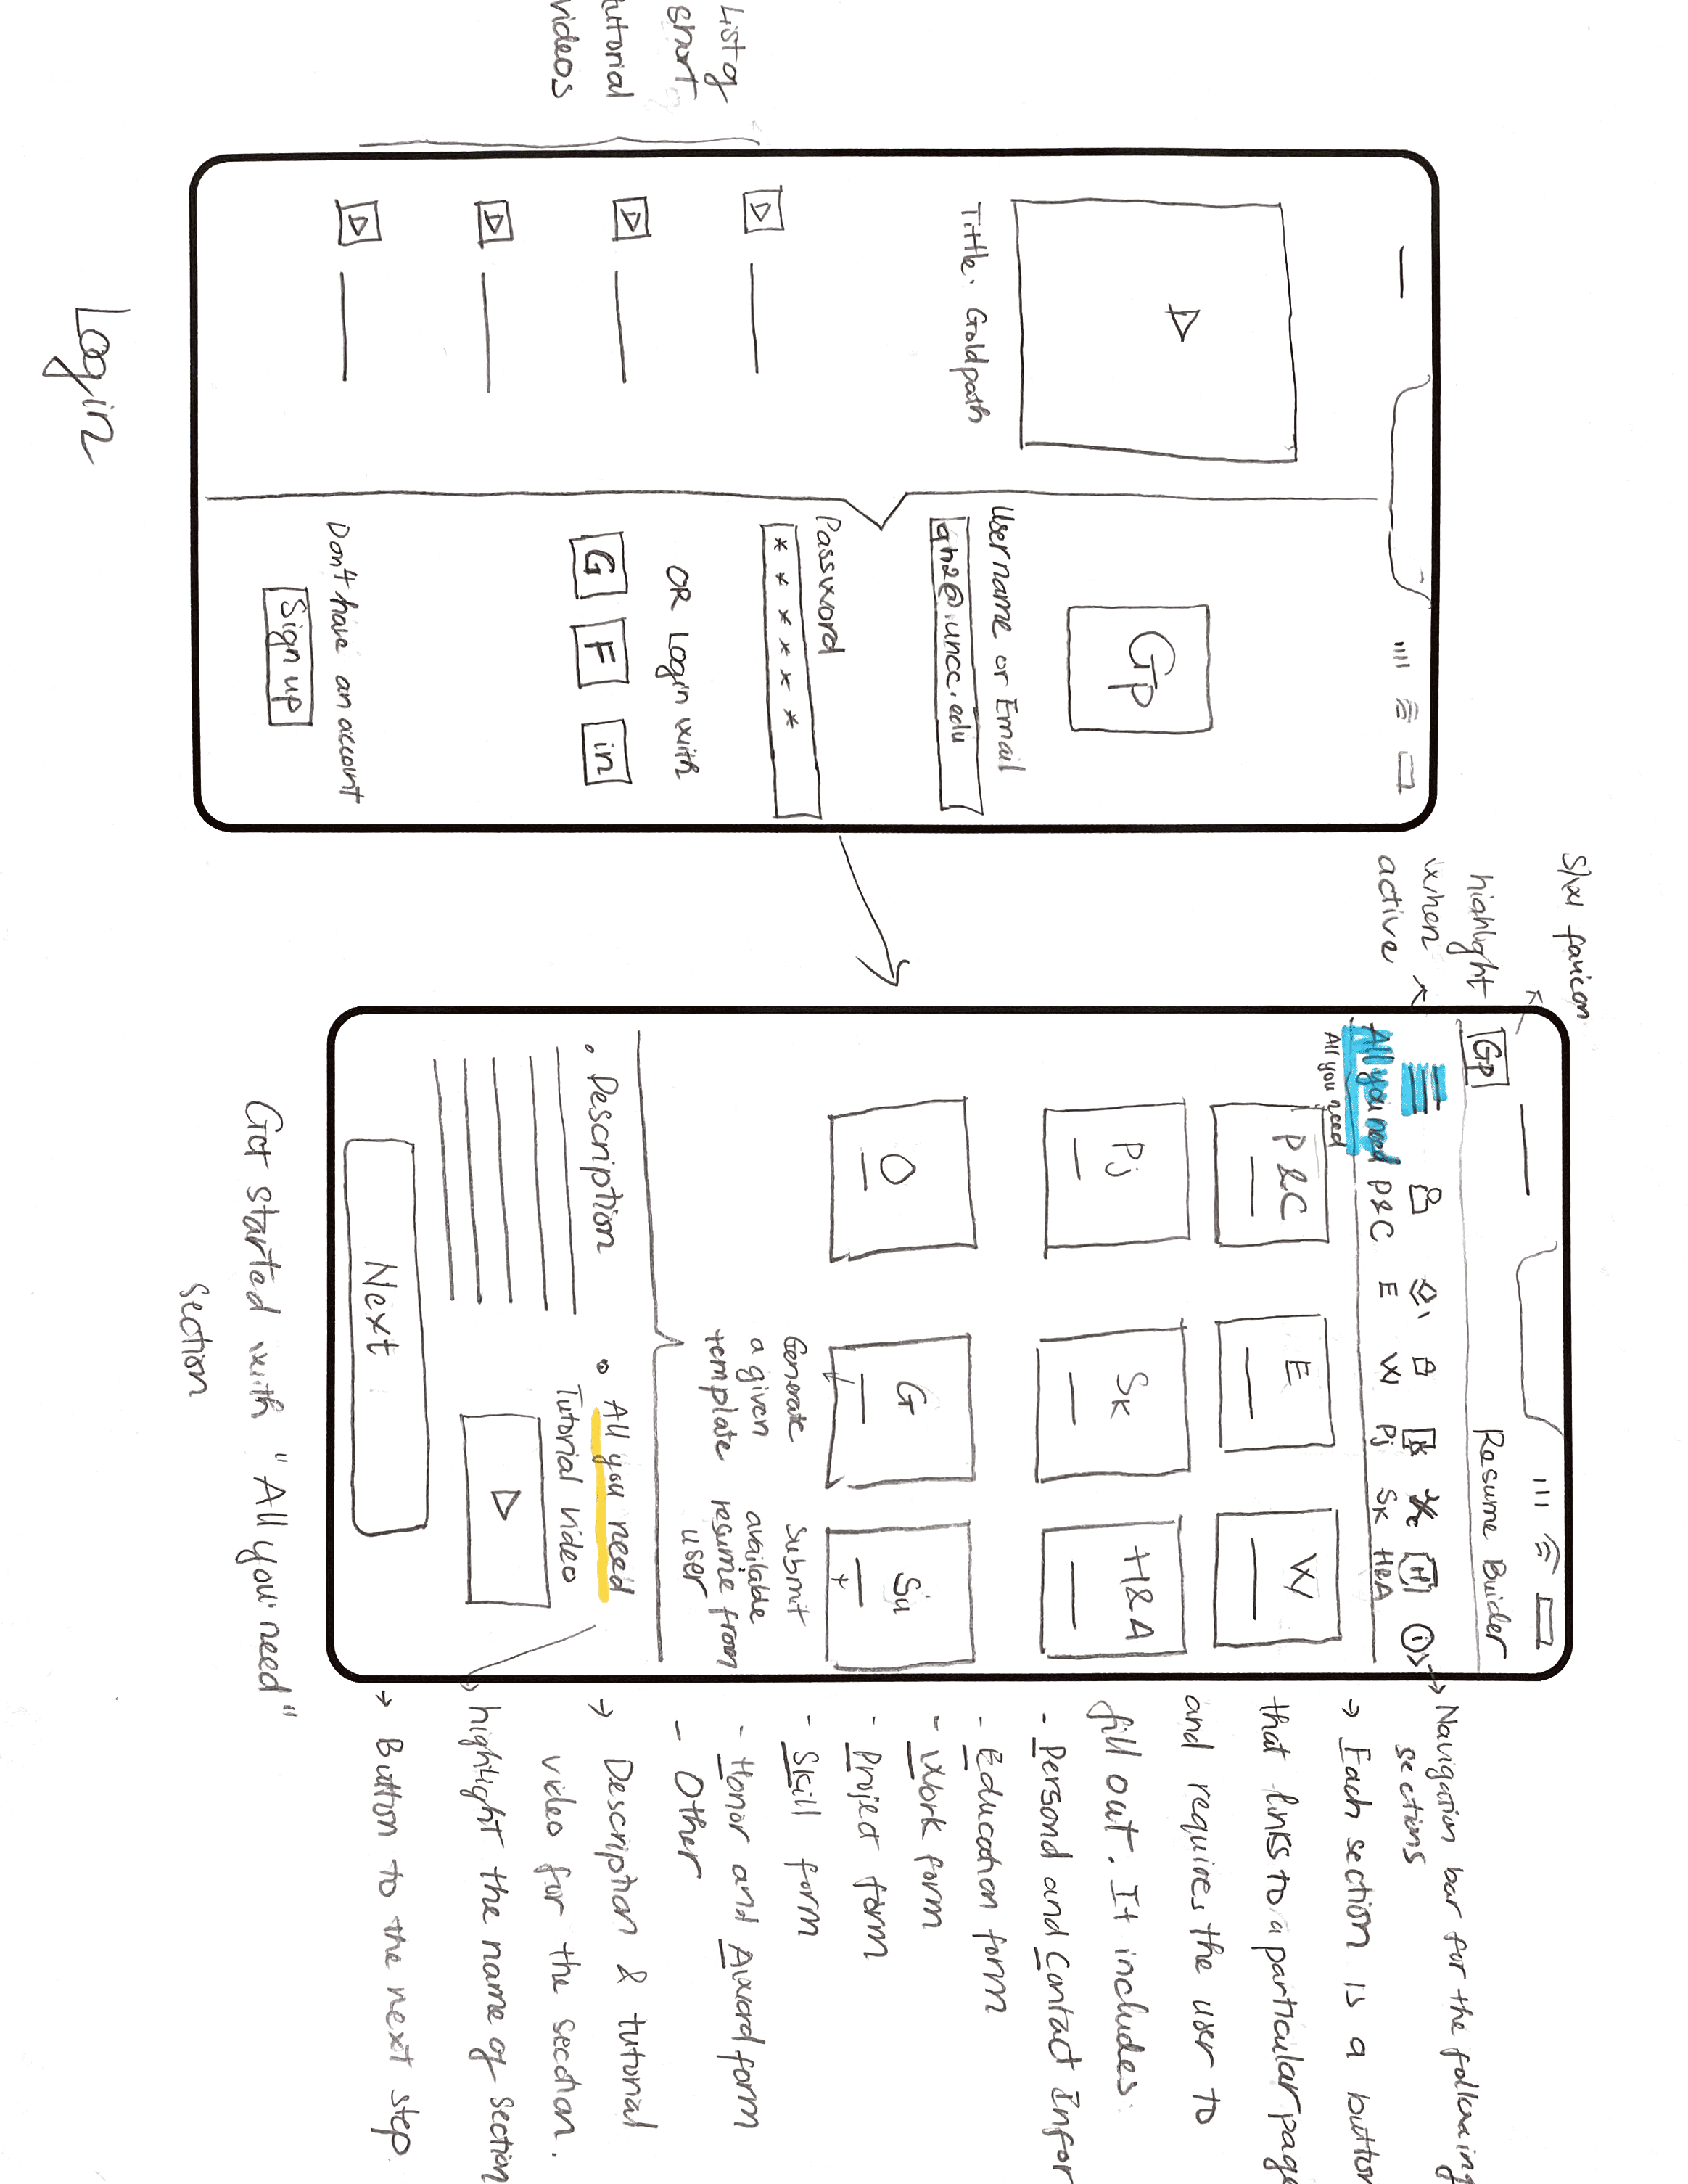 List of
short
tutorial
videos
Tittle: Goldpath
Gp
Username or Email
@uncc.edu
Password
* * * * * *
OR Login with
G F in
Don't have an account
Sign up
Login
favicon
highlight
when
active
Gp
Resume Buider
All you need P&C E W Pj Sk H&A
All you need
P&C E W
Pj Sk H&A
O G Su
Generate
a given
template
Submit
available
resume from
user
• Description
• All you need
Tutorial video
Next
Get started with "All you need"
section
→ Navigation bar for the following
sections
→ Each section is a button
that links to a particular page
and requires the user to
fill out. It includes:
- Personal and Contact Infor
- Education form
- Work form
- Project form
- Skill form
- Honor and Award form
- Other
→ Description & tutorial
video for the section.
→ highlight the name of section
→ Button to the next step